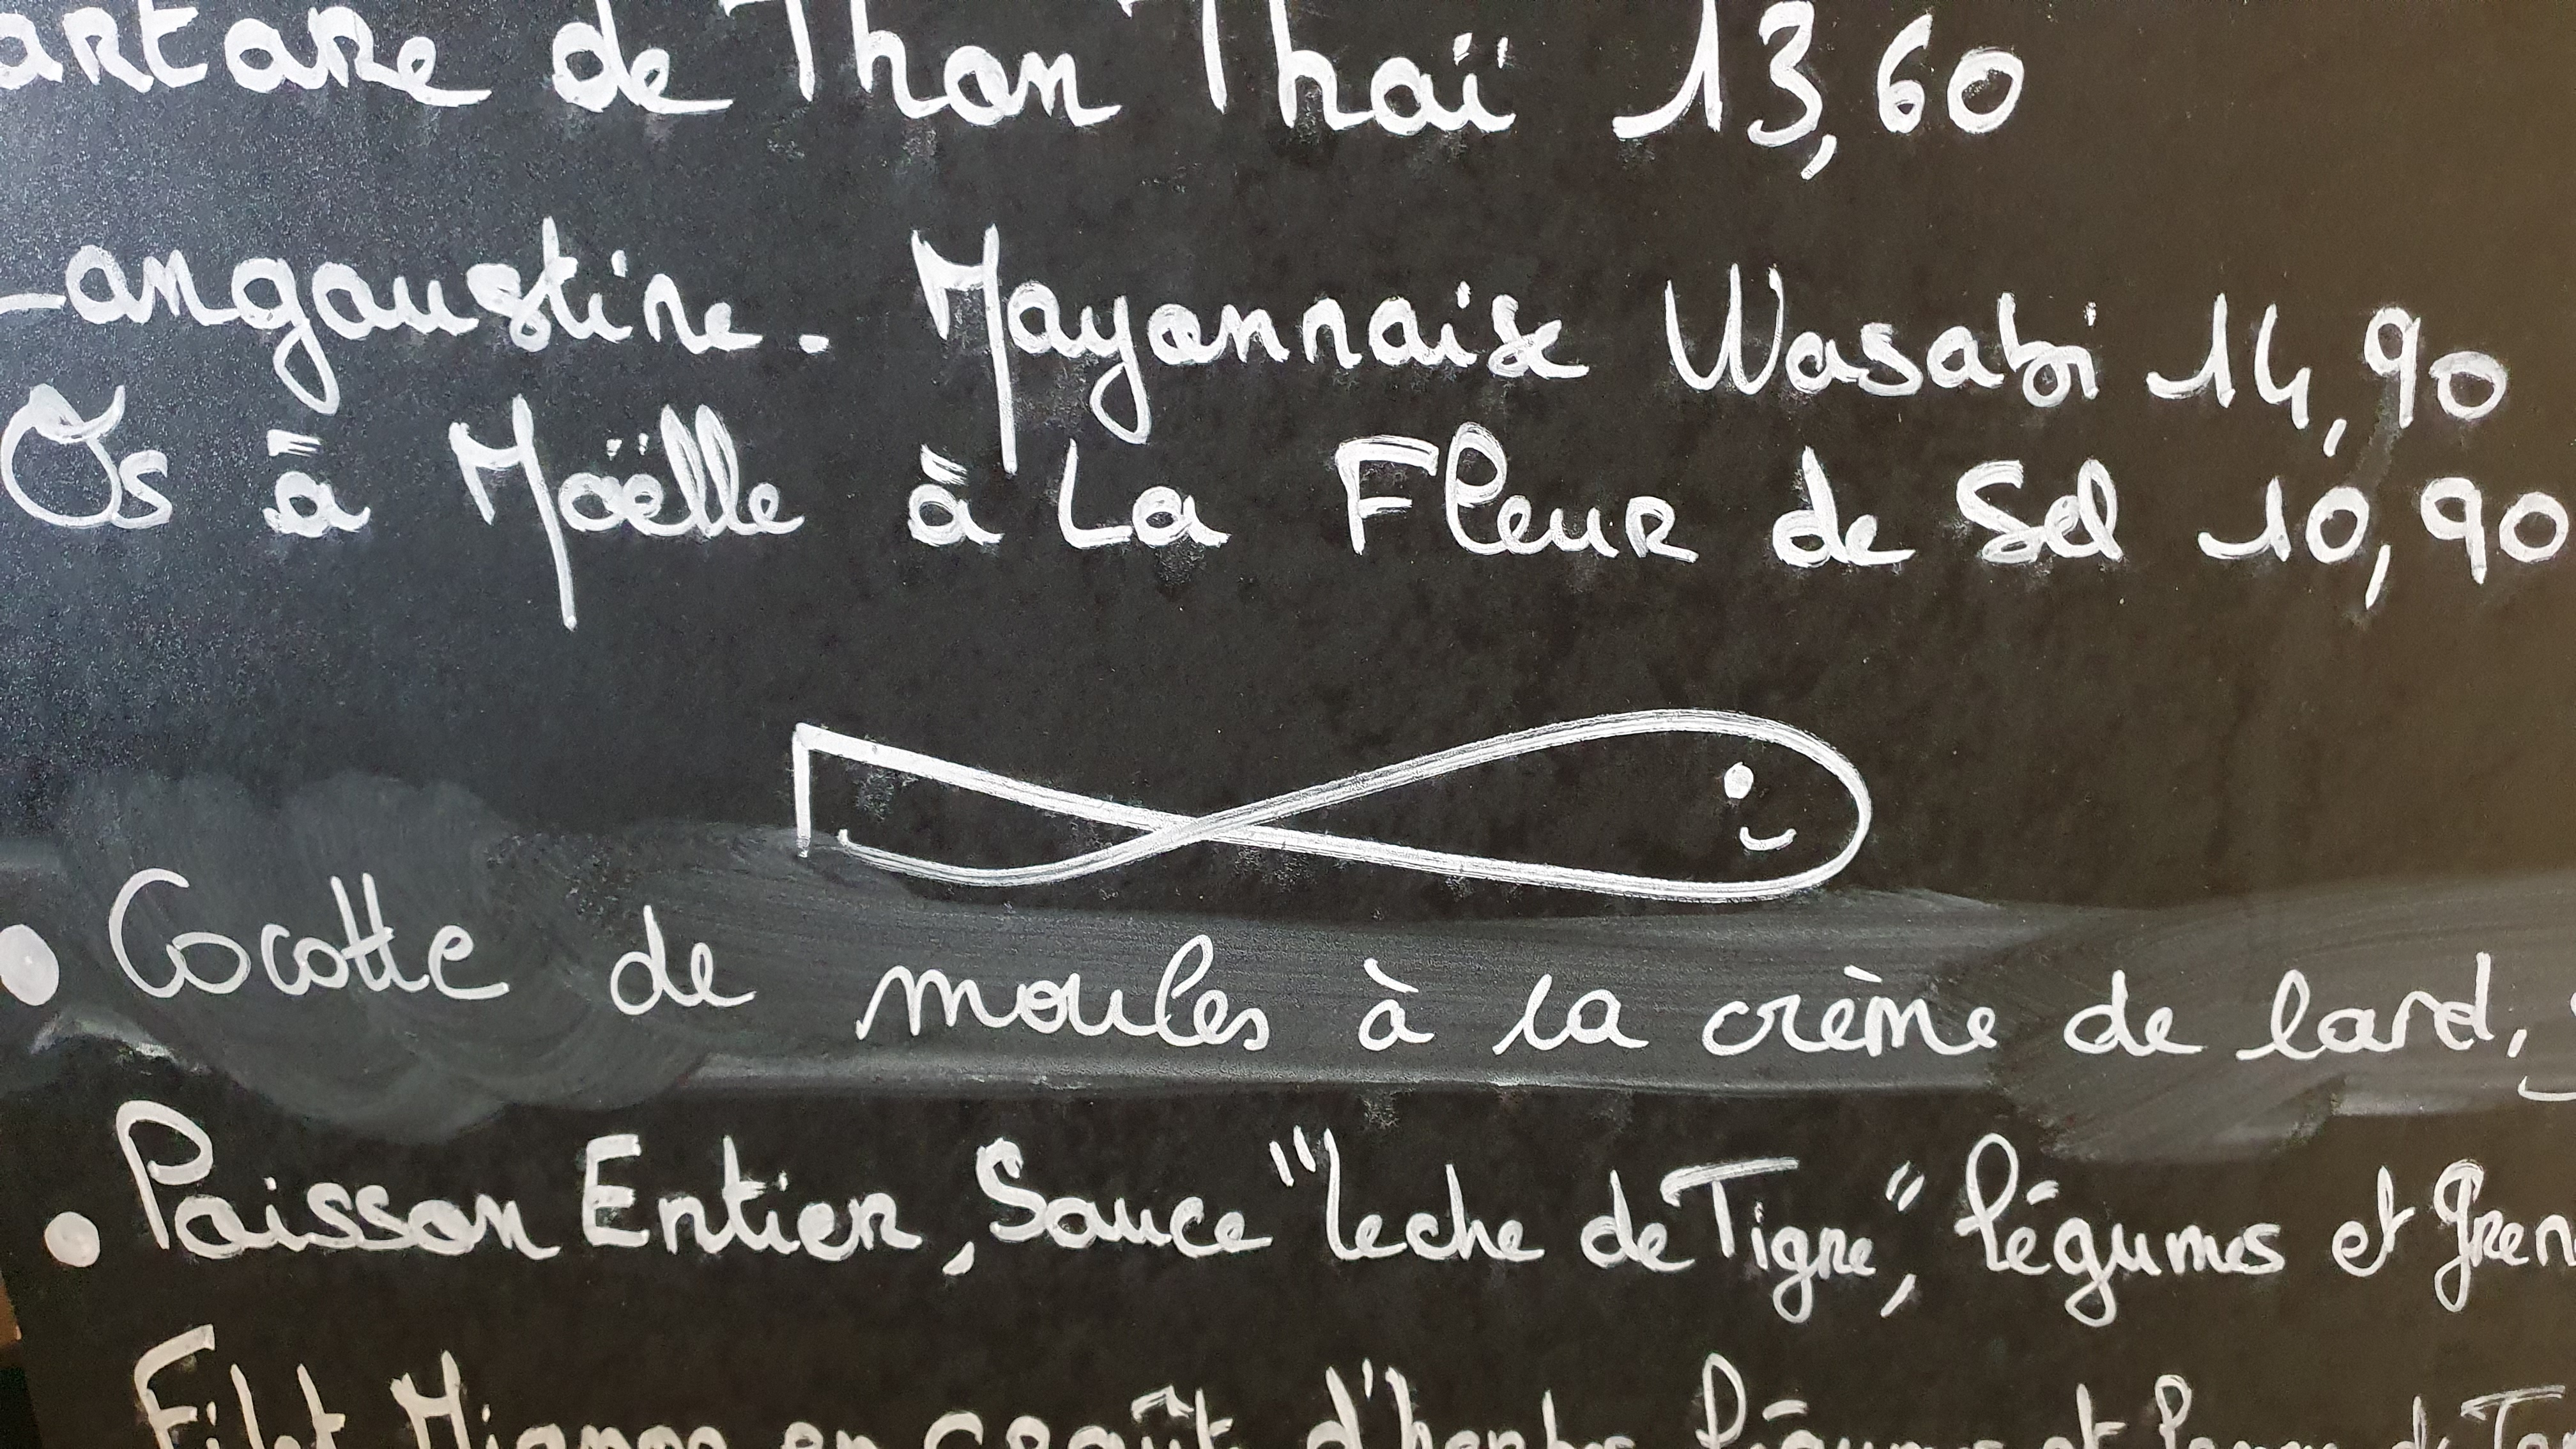 artare de Thon Thaï 13,60
Langoustine. Mayonnaise Wasabi 14,90
Os à Moëlle à La Fleur de Sel 10,90
• Cocotte de moules à la crème de lard,
• Poisson Entier, Sauce "Leche de Tigre", légumes et Gren
Filet Mignon en croûte d'herbes légumes et